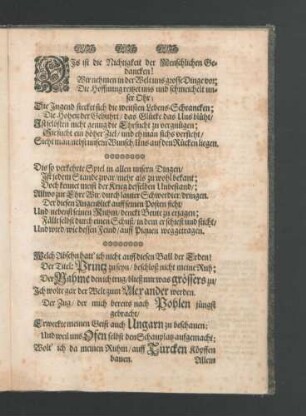 Dis ist die Nichtigkeit der Menschlichen Ge-
dancken!
Wir nehmen in der Welt uns grosse Dinge vor;
Die Hoffnung reitzet uns und schmeichelt un-
ser Ohr;
Die Jugend stecket sich die weitsten Lebens-Schrancken;
Die Hoheit der Gebuhrt, das Glücke das Uns blüht,
Ist vielen nicht genug die Ehrsucht zu vergnügen;
Sie sucht ein höher Ziel, und eh man sichs versieht,
Sieht man
Wunsch, Uns auf den Rücken liegen.
Dis so verkehrte Spiel in allen unsern Dingen,
Ist jedem Stande zwar mehr als zu wohl bekant;
Doch kennet meist der Krieg desselben Unbestand,
Allwo zur Ehre Wir durch lauter Schwerdter dringen.
Der diesen Augenblick auff seinen Posten steht,
Und nebenst seinem Ruhm denckt Beute zu erjagen;
Fällt selbst durch einen Schuß, in dem er schiest und sticht,
Und wird, wie dessen Feind, auff Piquen weggetragen.
Welch Absehn hatt' ich nicht auff diesen Ball der Erden!
Der Titel: Printz zu seyn, beschloß nicht meine Ruh;
Der Nahme
was grössers zu,
Ich wolte gar der Welt zum Alexander werden.
Der Zug, der mich bereits nach Pohlen jüngst
gebracht,
Erweckte meinen Geist auch Ungarn zu beschauen;
Und weil uns Ofen selbst den Schauplatz aufgemacht;
Wolt' ich da meinen Ruhm, auff Türcken Köpffen
bauen.
Allein